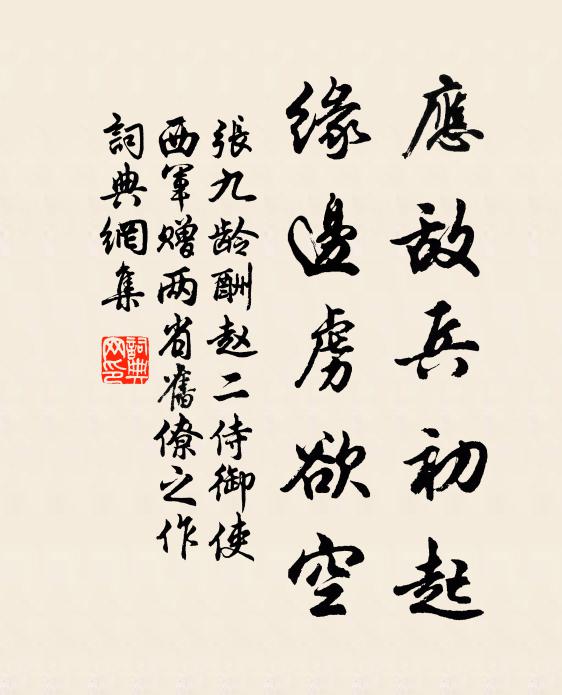 應敵兵初起
緣邊虜欲空
張九龄酬赵二侍御使
西軍赠两省舊僚之作
詞典網集
詞典网印